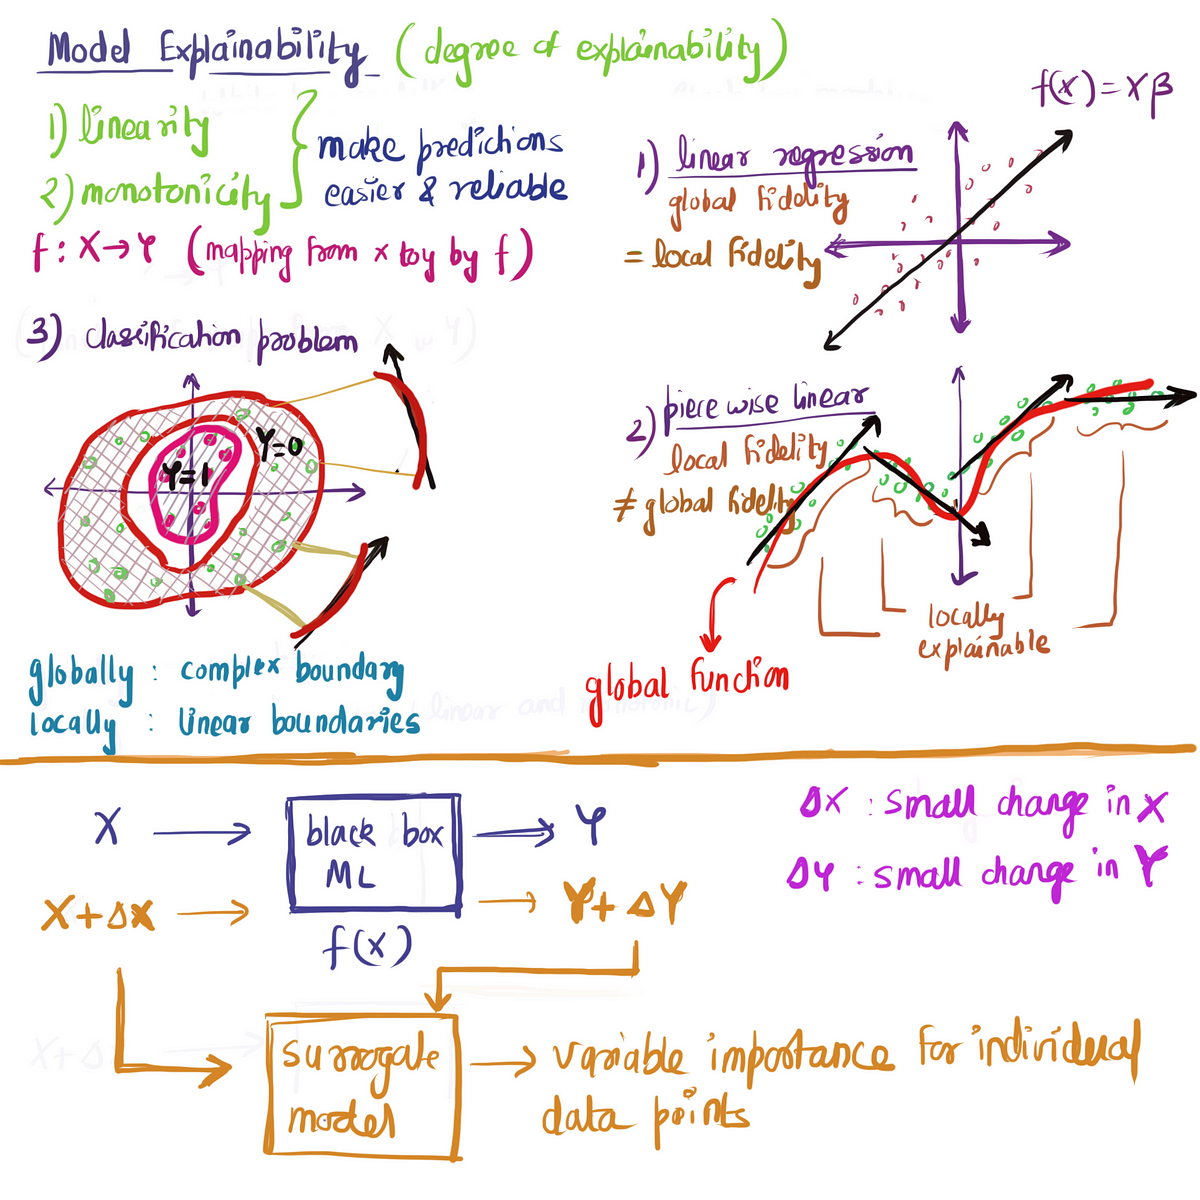 Model Explainability (degree of explainability)
1) linearity
2) monotonicity
make predictions
easier & reliable
f : X→Y (mapping from x to y by f)
f(x) = Xβ
1) linear regression
global fidelity
= local fidelity
3) classification problem
Y=0
Y=1
globally : complex boundary
locally : linear boundaries
2) piece wise linear
local fidelity
≠ global fidelity
locally
explainable
global function
X → black box ML → Y
X+ΔX → Y+ΔY
f(x)
ΔX : small change in X
ΔY : small change in Y
surrogate
model
→ variable importance for individual
data points